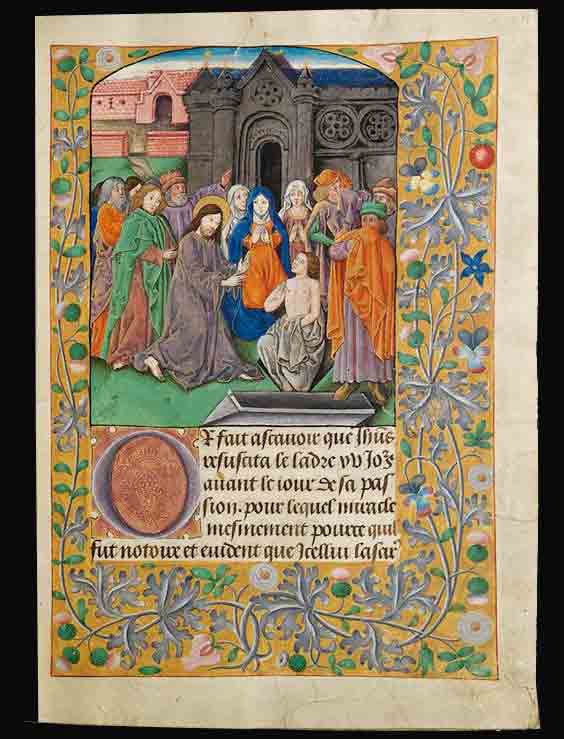 Or fait ascavoir que Jhūs
resuscita le ladre xv Jo₃
auant le iour de sa pas
sion. pour lequel miracle
mesmement pource quil
fut notoire et euident que Jcellui lasar̄